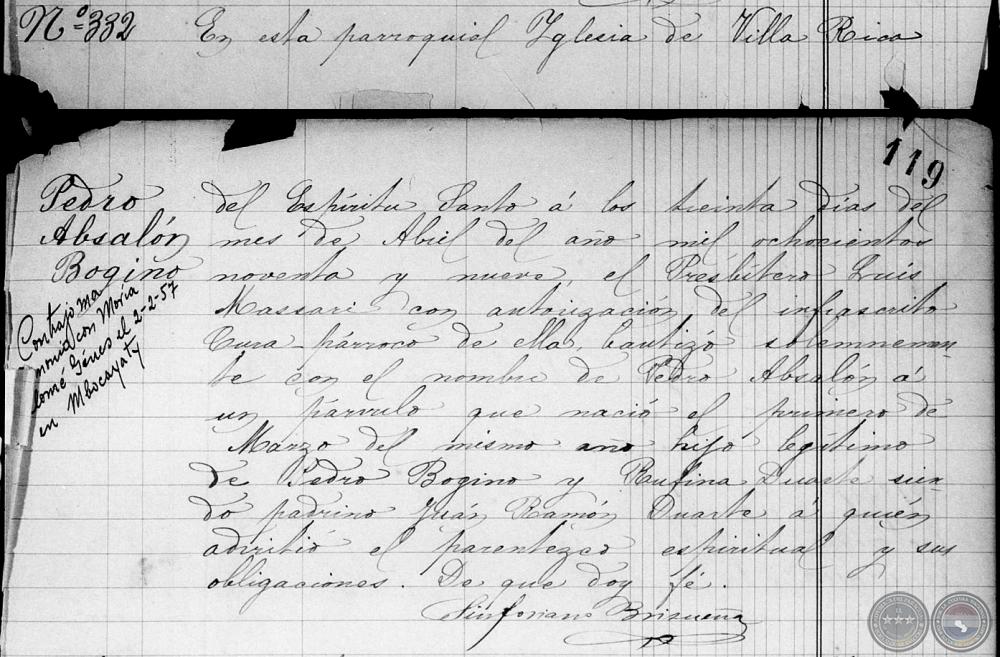 Nº 332 En esta parroquial Yglesia de Villa Rica
119
Pedro
Absalón
Bogino
Contrajo ma
monio con María
lomé Génes el 2-2-57
en Mbocayaty
del Espíritu Santo á los treinta días del
mes de Abril del año mil ochocientos
noventa y nueve, el Presbítero Luis
Massari con autorización del infrascrito
Cura-párroco de ella, bautizó solemnemen-
te con el nombre de Pedro Absalón á
un párvulo que nació el primero de
Marzo del mismo año hijo legítimo
de Pedro Bogino y Rufina Duarte sien-
do padrino Juán Ramón Duarte á quién
advirtió el parentezco espiritual y sus
obligaciones. De que doy fé.
Sinforiano Brisueña